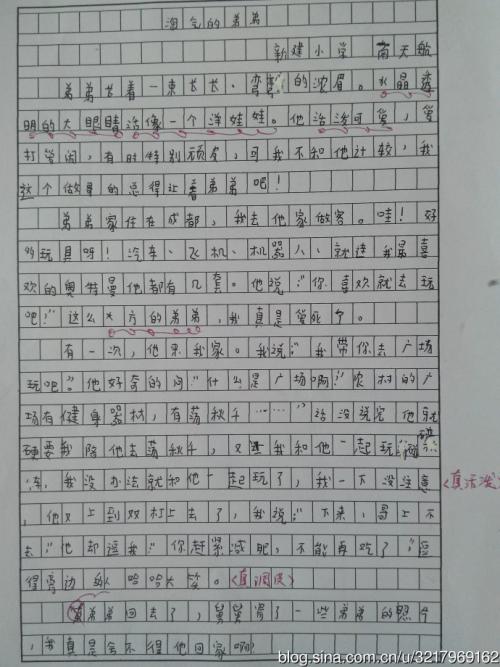 淘气的弟弟
新建小学 南天航
弟弟长着一束长长、弯弯的浓眉。水晶透
明的大眼睛活像一个洋娃娃。他活泼可爱,爱
打爱闹,有时特别顽皮,可我不和他计较,我
这个做哥的总得让着弟弟吧!
弟弟家住在成都,我去他家做客。哇!好
多玩具呀!汽车、飞机、机器人、就连我最喜
欢的奥特曼他都有几套。他说:“你喜欢就去玩
吧!”这么大方的弟弟,我真是爱死了。
有一次,他来我家。我说:“我带你去广场
玩吧?”他好奇的问:“什么是广场啊?”农村的广
场有健身器材,有荡秋千……”话没说完他就
硬要我陪他去荡秋千,又要我和他一起玩“碰碰
车,我没办法就和他一起玩了,我一下没注意
,他又上到双杠上去了,我说:“下来,哥上不
去!”他却逗我:“你赶紧减肥,不能再吃了”,逗
得旁边 哈哈大笑。(真调皮)
(真活泼)
弟弟回去了,舅舅寄了一些弟弟的照片
,我真是舍不得他回家啊!
blog.sina.com.cn/u/3217969162